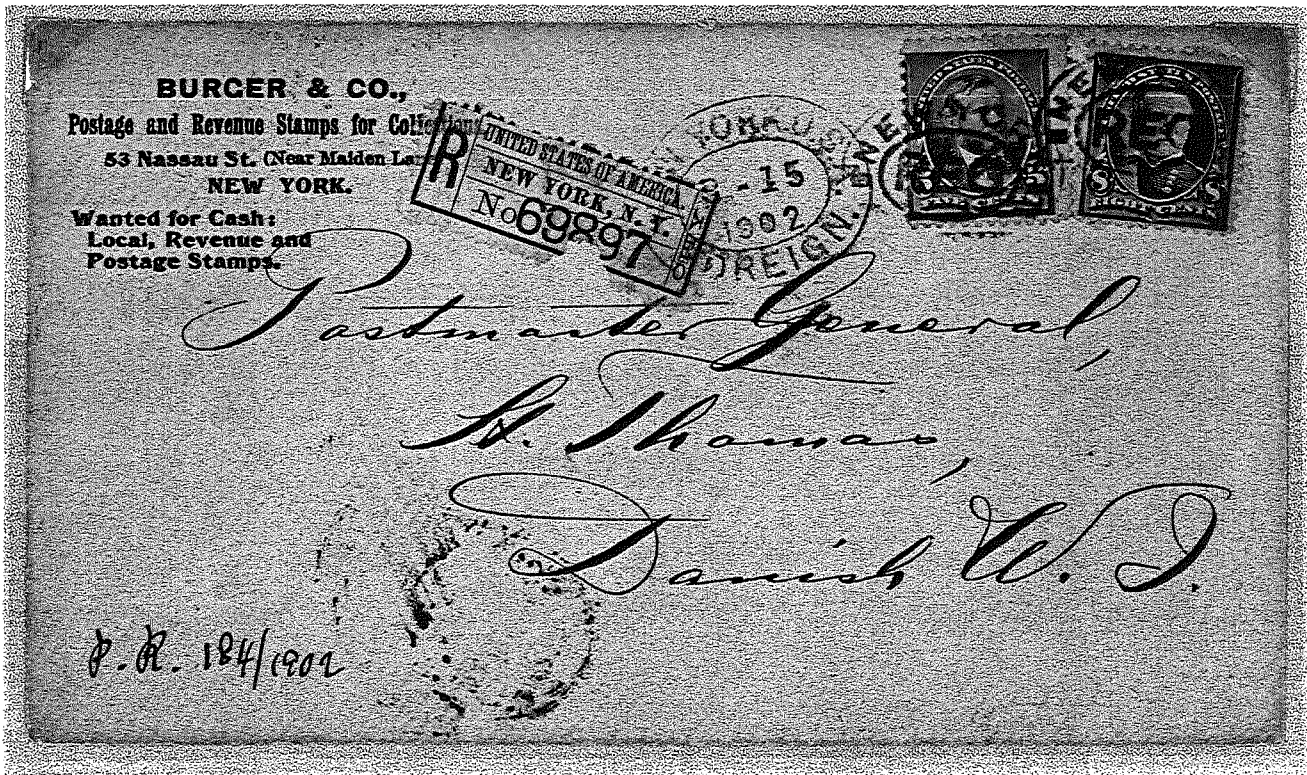 BURGER & CO.,
Postage and Revenue Stamps for
53 Nassau St. (Near Maiden
NEW YORK.
Wanted for Cash:
Local, Revenue and
Postage Stamps.
R
UNITED STATES OF AMERICA.
NEW YORK, N. Y.
No 69897
15
1902
FOREIGN.
REG
EIGHT CENTS
Postmaster General,
St. Thomas,
Danish W. I.
P. R. 184/1902